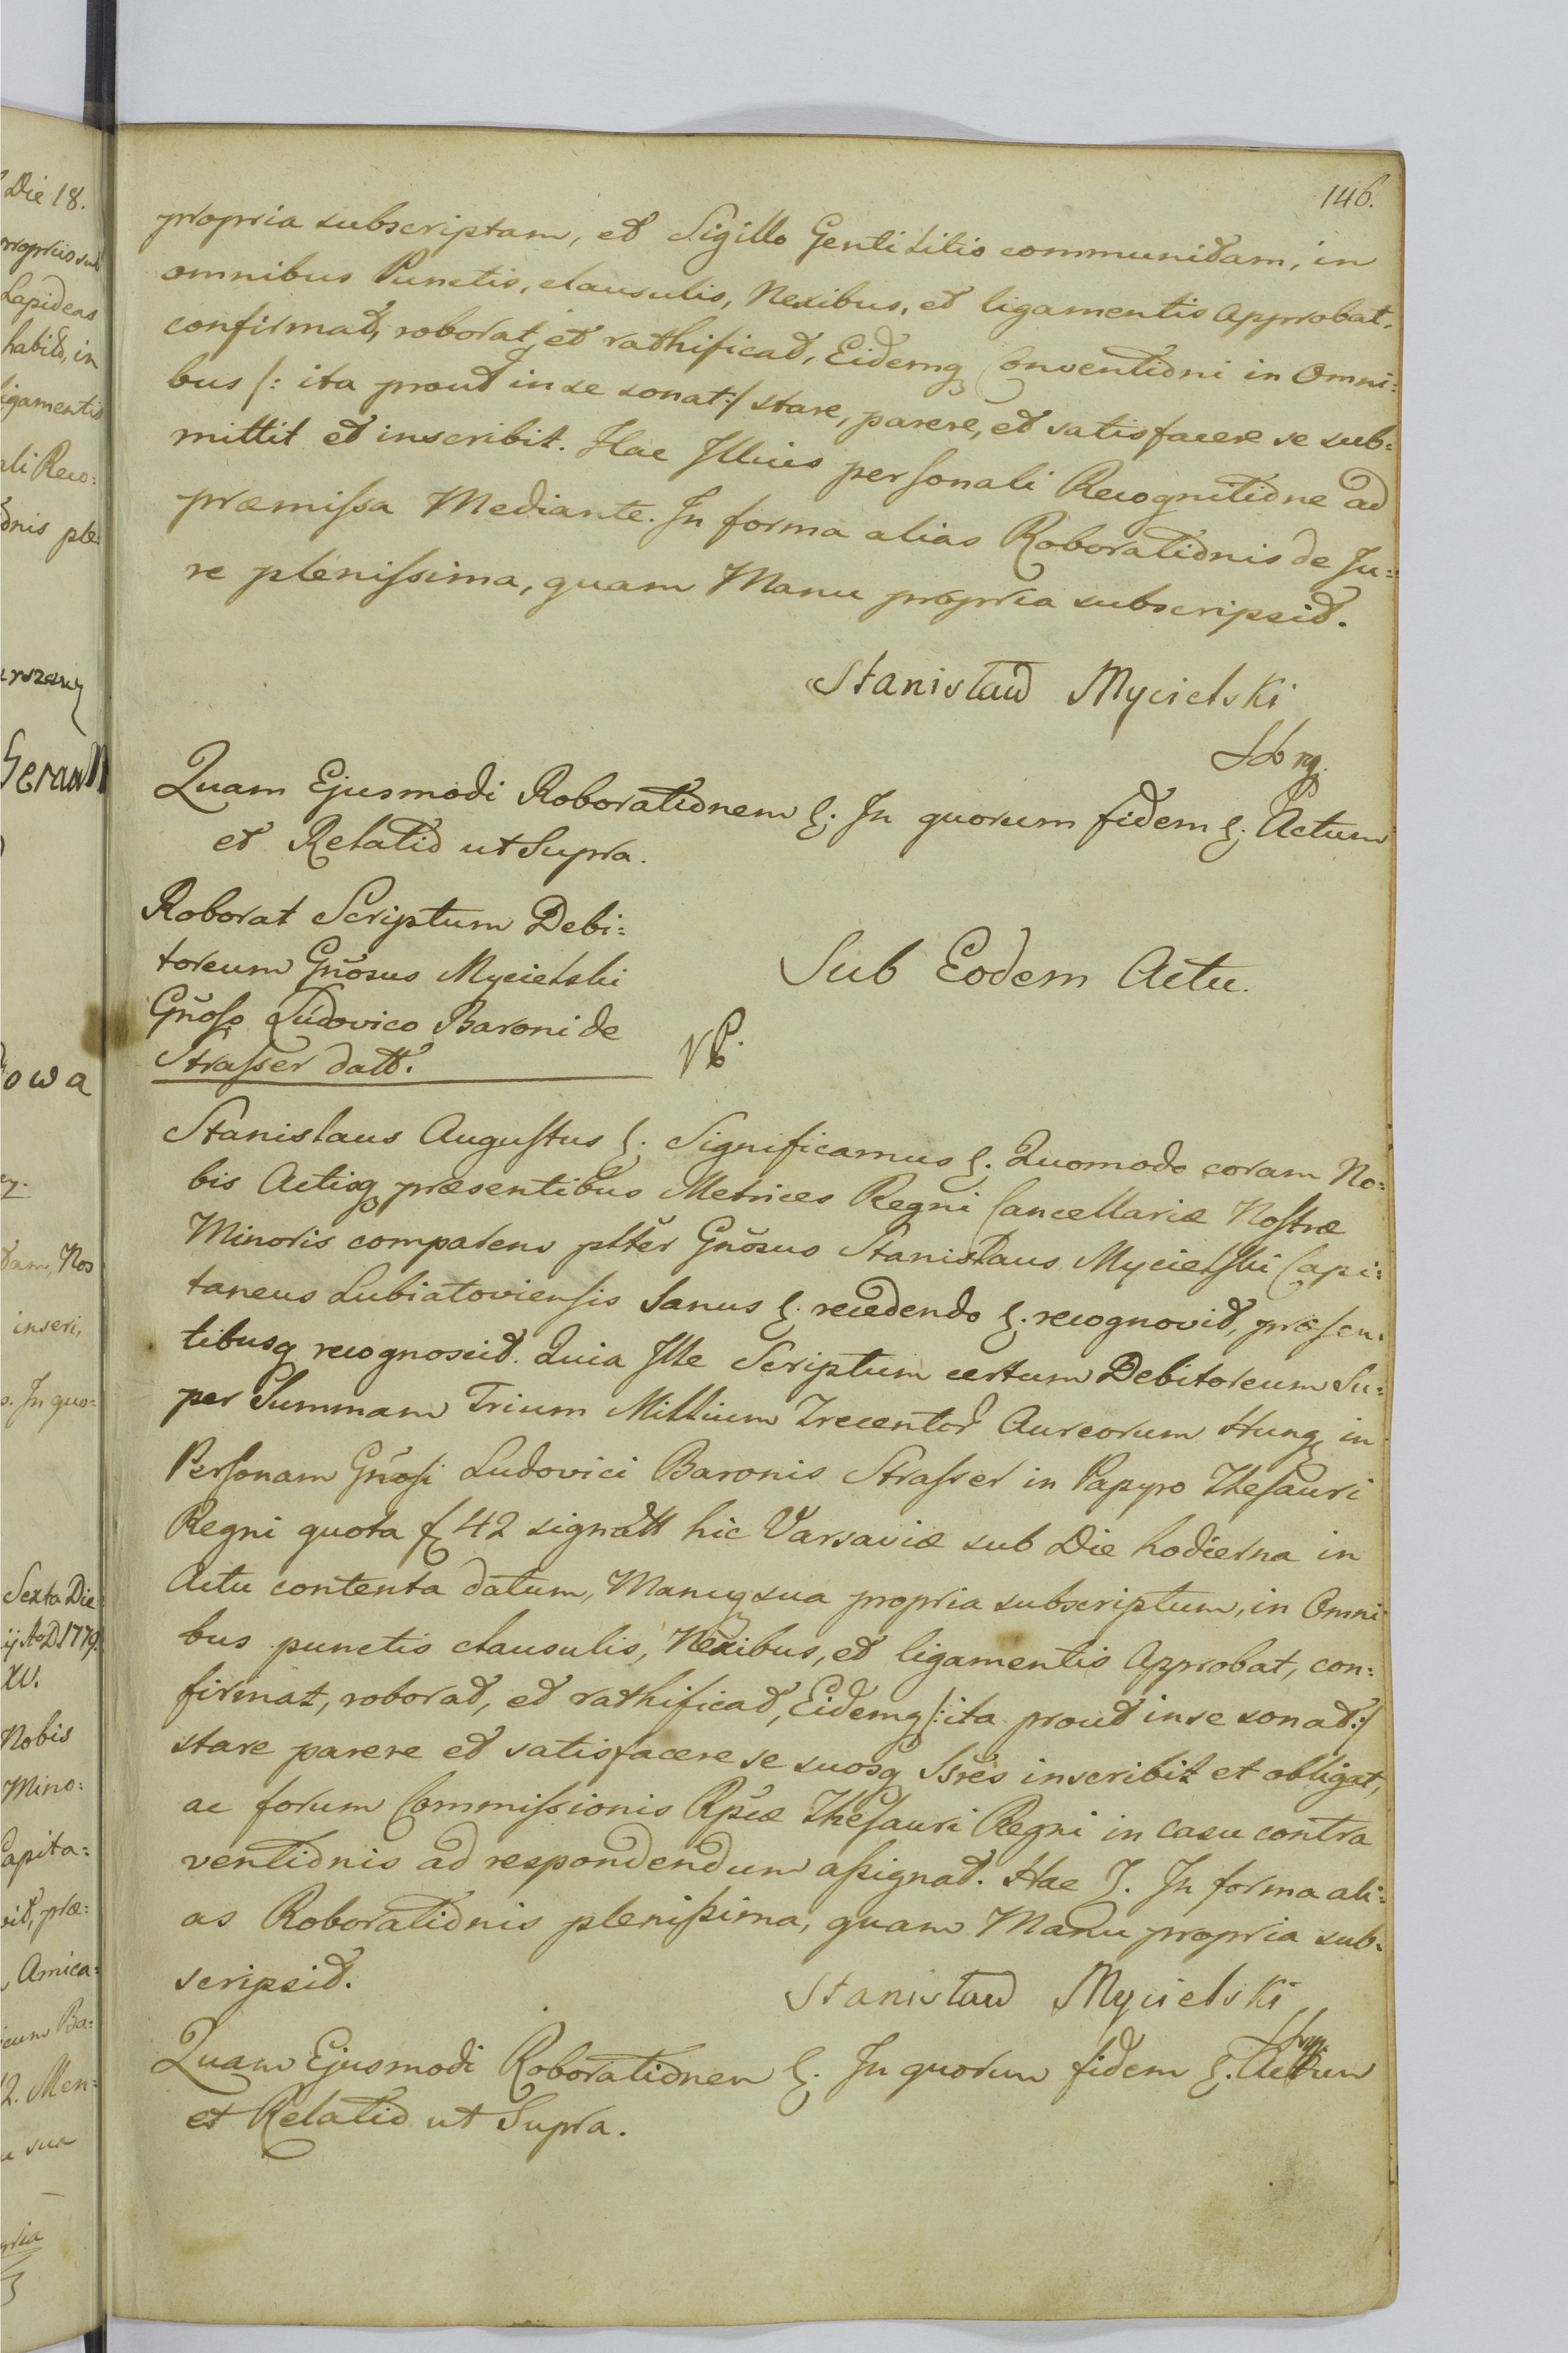 146.
propria subscriptam, et Sigillo Gentitilis communitam, in
omnibus Punctis, clausulis, Nexibus, et ligamentis Approbat,
confirmat, roborat, et rathificat, Eidemq Conventioni in Omni=
bus /: ita prout in se sonat :/ stare, parere, et satisfacere se sub=
mittit et inscribit. Hac Illius personali Recognitione ad
præmissa Mediante. In forma alias Roborationis de Ju=
re plenissima, quam Manu propria subscripsit.
Stanisław Mycielski
Quam Ejusmodi Roborationem &. In quorum fidem &. Actum
et Relatio ut Supra.
Roborat Scriptum Debi=
toreum Gñosus Mycielski
Gñoso Ludovico Baroni de
Strasser datt.
Sub Eodem Actu.
Stanislaus Augustus &. Significamus &. Quomodo coram No=
bis Actisq præsentibus Metrices Regni Cancellariæ Nostræ
Minoris comparens pltěr Gñosus Stanislaus Mycielski Capi=
taneus Lubiatoviensis Sanus &. recedendo &. recognovit, præsen=
tibusq recognoscit. Quia Ille Scriptum certum Debitoreum Su=
per Summam Trium Millium Trecentor Aureorum Hung in
Personam Gñosi Ludovici Baronis Strasser in Papyro Thesauri
Regni quota f 42 signatt hic Varsaviæ sub Die hodierna in
Actu contenta datum, Manuq sua propria subscriptum, in Omni
bus punctis clausulis, Nexibus, et ligamentis Approbat, con=
firmat, roborat, et rathificat, Eidemq /: ita prout in se sonat :/
stare parere et satisfacere se suosq Ssres inscribit et obligat,
ac forum Commissionis Rpcæ Thesauri Regni in casu contra
ventionis ad respondendum assignat. Hac &. In forma ali=
as Roborationis plenissima, quam Manu propria sub=
scripsit.
Stanisław Mycielski
Quam Ejusmodi Roborationem &. In quorum fidem &. Actum
et Relatio ut Supra.